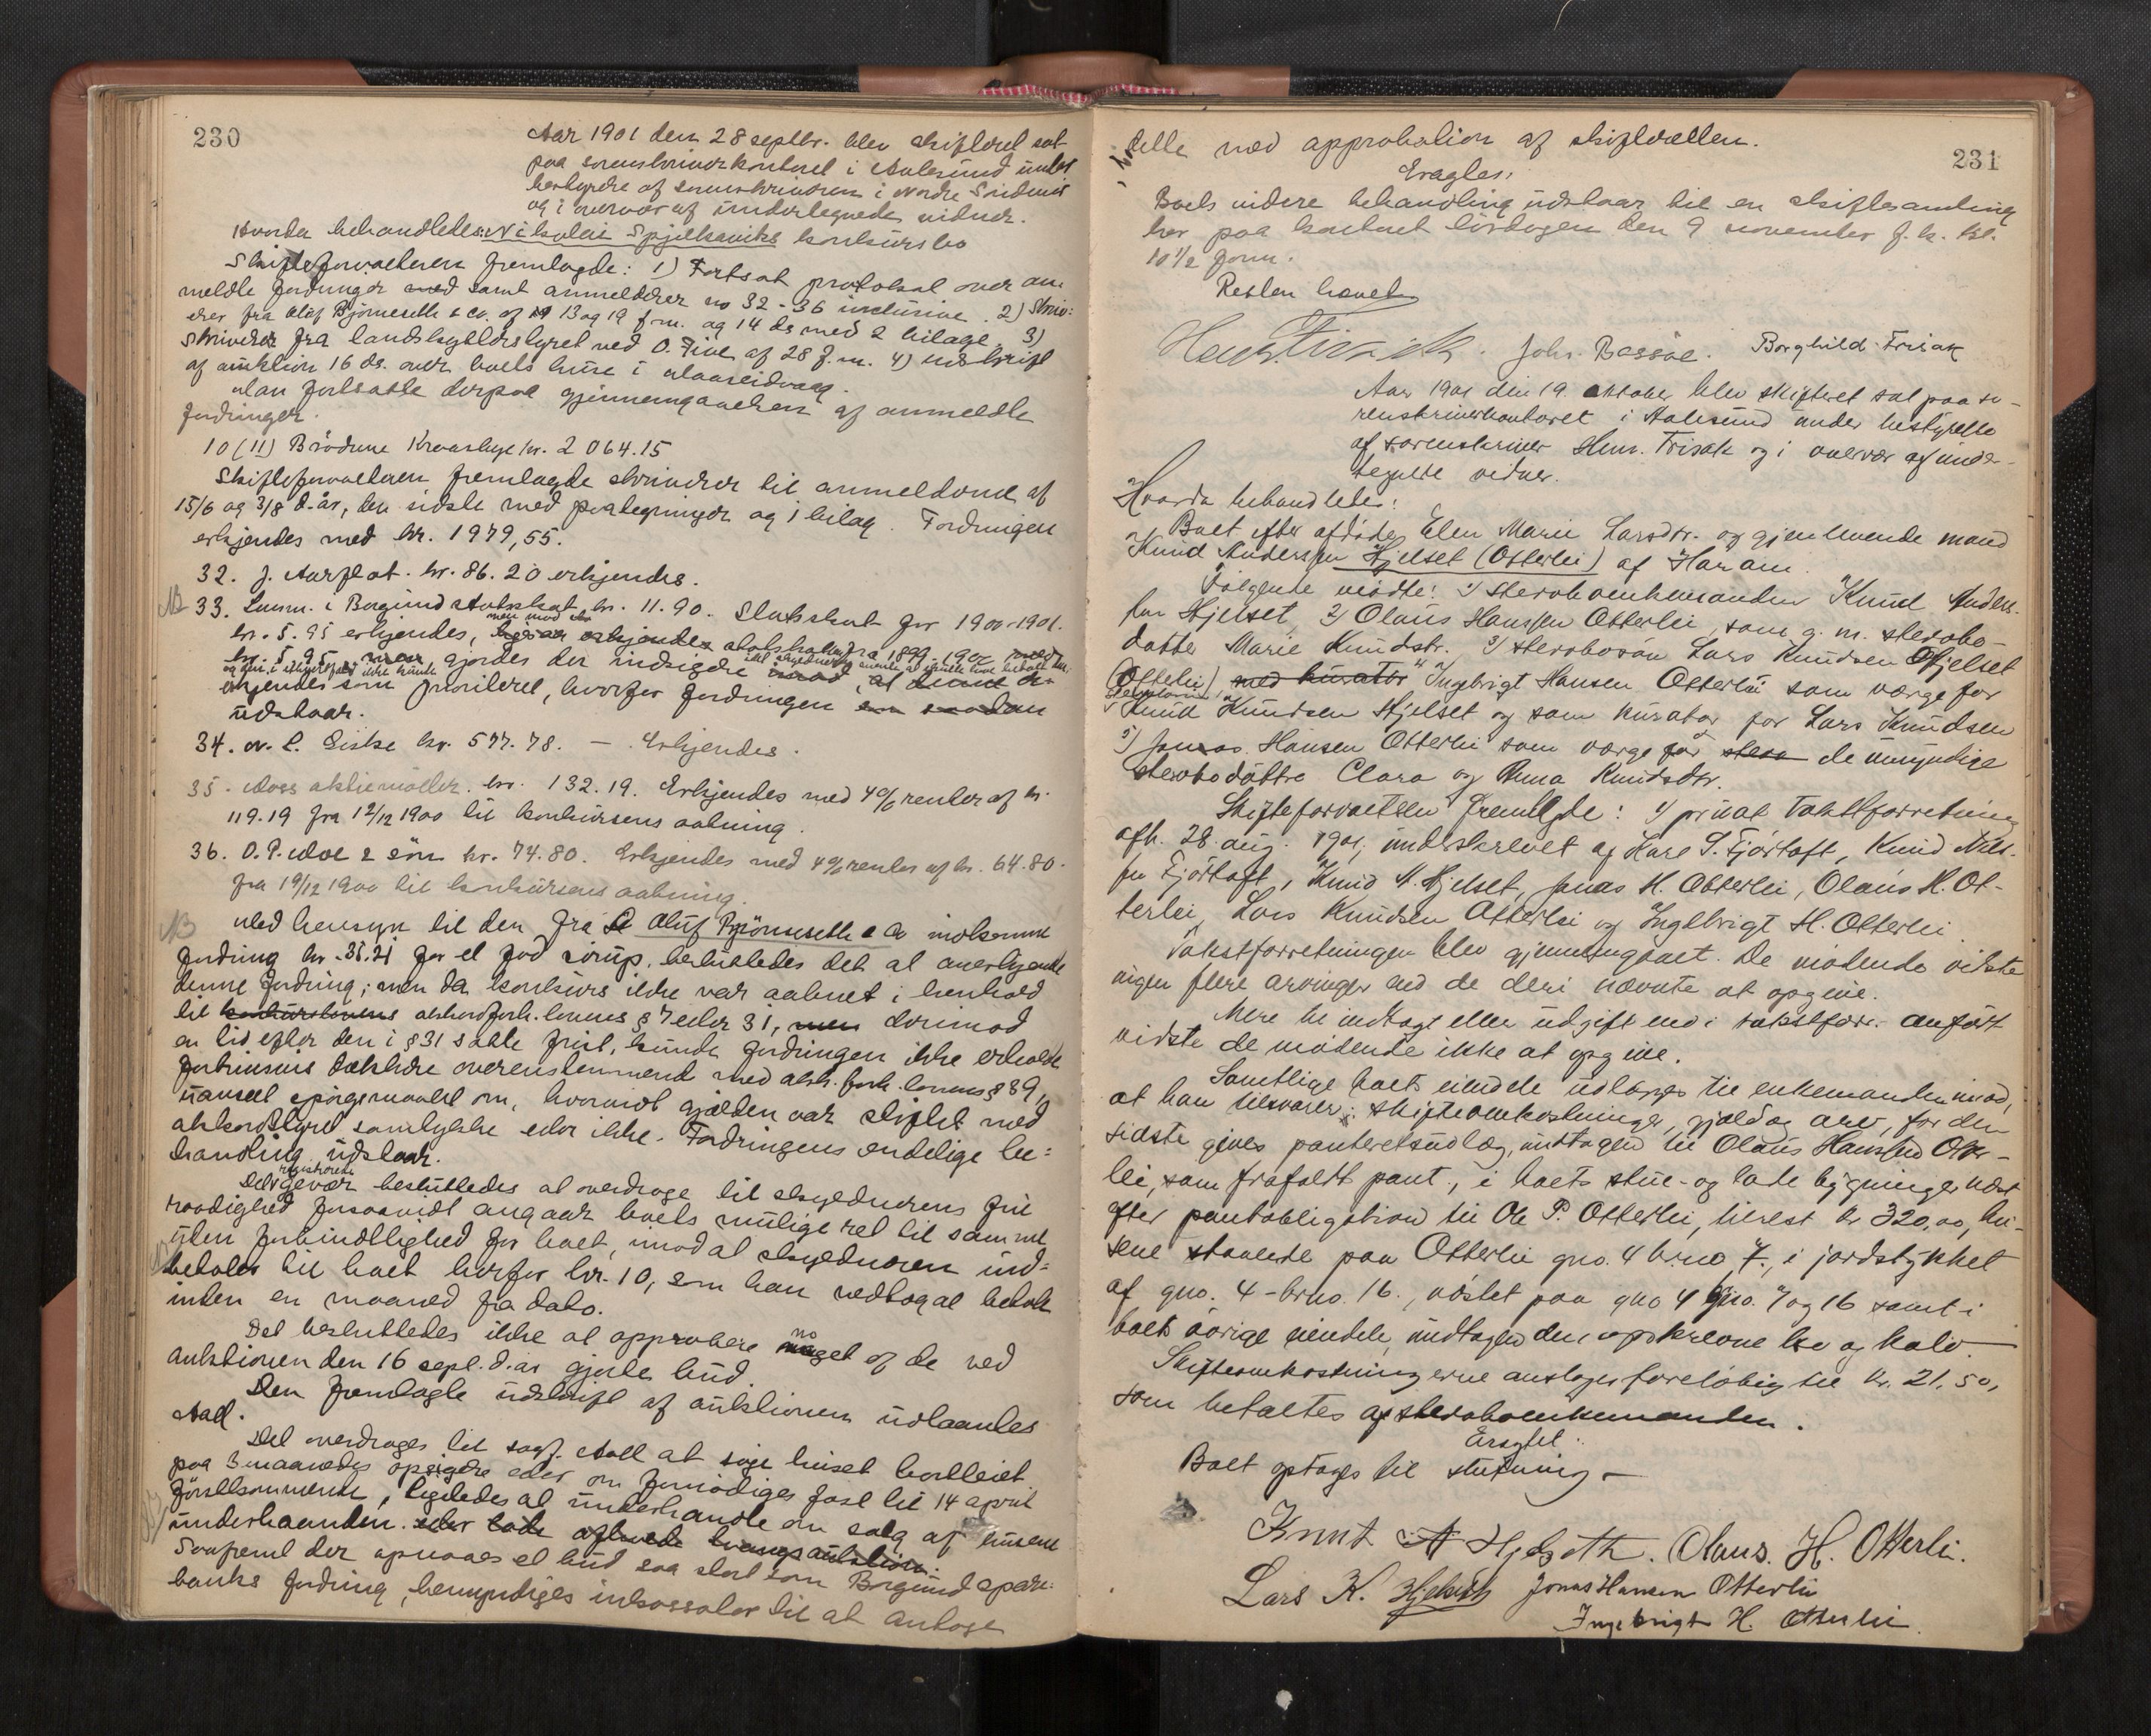 230
Aar 1901 den 28 septbr. blev skifteret sat
paa sorenskriverkontoret i Aalesund under
bestyrelse af sorenskriveren i Nordre Søndmør
og i overvær af undertegnede vidner.
Hvorda behandledes: Nikolai Spjelkaviks konkursbo
Skifteforvalteren fremlagde: 1) Fortsat protokol over an-
meldte fordringer med samt anmeldelser no 32-36 inclusive. 2) Skriv:
elser fra Oluf Bjørneseth & co. af 13 og 19 f.m. og 14 ds med 2 bilage. 3)
Skrivelse fra landskyldstyret ved O. Five af 28 f.m. 4) udskrift
af auktion 16 ds. over boets huse i
Man fortsatte derpaa gjennemgaaelsen af anmeldte
fordringer.
10 (11) Brødrene Kvaashye kr. 2064.15
Skifteforvalteren fremlagde skrivelser til anmelderne af
15/6 og 3/8 d. år, den sidste med paategninger og 1 bilag. Fordringen
erkjendes med kr. 1979,55.
32. J. Aarflot. kr. 86.20 erkjendes.
NB 33. Lensm. i Borgund statsskat kr. 11.90. Statsskat for 1900-1901.
kr. 5.95 erkjendes, men mod statsskatten fra 1899-1900 med
kr. 5.95 men gjordes der indsigelse mod, at denne
erkjendes som prioriteret, hvorfor fordringen en saadan
udstaar.
34. M. L. Giske kr. 577.78. — Erkjendes.
35. Moss aktiemøller. kr. 132.19. Erkjendes med 4% renter af kr.
119.19 fra 12/12 1900 til konkursens aabning.
36. O. P. Moe & søn kr. 74.80. Erkjendes med 4% renter af kr. 64.80.
fra 19/12 1900 til konkursens aabning.
NB Med hensyn til den fra Oluf Bjørneseth & Co indkomne
fordring kr. 35.21 for et fad sirup, besluttedes det at anerkjende
denne fordring; men da konkurs ikke var aabnet i henhold
til konkurslovens akkordforh. lovens § 7 eller 31, men derimod
en tid efter den i § 31 satte frist, kunde fordringen ikke erholde
fortrinsvis dækkelse overensstemmende med akk. forh. lovens § 39,
uanset spørgsmaalet om, hvorvidt gjælden var stiftet med
akkordstyrets samtykke eller ikke. Fordringens endelige be-
handling udstaar.
Det registrerede gevær besluttedes at overdrage til skyldnerens frie
raadighed forsaavidt angaar boets mulige ret til samme
uden forbindtlighed for boet, mod at skyldneren ind-
betaler til boet herfor kr. 10, som han vedtog at betale
inden en maaned fra dato.
Det besluttedes ikke at approbere noget af de ved
auktionen den 16 sept. d. år gjorte bud.
Den fremlagte udskrift af auktionen udlaantes
Aall.
Det overdrages til sagf. Aall at søge huset bortleiet
paa 3 maaneders opsigelse eller om fornødiges fast til 14 april
førstkommende, ligeledes at underhandle om salg af husene
underhaanden. eller lade afholde tvangsauktion.
Saafremt der opnaaes et bud saa stort som Borgund spare-
banks fordring, bemyndiges inkassator til at antage
231
dette med approbation af skifteretten.
Eragtes:
Boets videre behandling udstaar til en skiftesamling
her paa kontoret lørdagen den 9 november f.k. kl.
10 1/2 form.
Retten hævet
Henr. Frisak. Johs. Bassøe. Borghild Frisak
Aar 1901 den 19. oktober blev skifteret sat paa so-
renskriverkontoret i Aalesund under bestyrelse
af sorenskriver Henr. Frisak og i overvær af under-
tegnede vidner.
Hvorda behandledes:
Boet efter afdøde Elen Marie Larsdtr. og gjenlevende mand
Knud Anderssen Hjelset (Otterlei) af Haram.
Følgende mødte: 1) Stervboenkemanden Knud Anders-
sen Hjelset, 2) Olaus Hanssen Otterlei som g. m. stervbo-
datter Marie Knudsdtr. 3) stervbosøn Lars Knudsen Hjelset
(Otterlei) med kurator 4) Ingebrigt Hansen Otterlei som værge for
Knud Knudsen Hjelset og som kurator for Lars Knudsen
5) Jonas Hansen Otterlei som værge for sterv de umyndige
stervbodøttre Clara og Anna Knudsdtr.
Skifteforvalteren fremlagde: 1) privat takstforretning
afh. 28. aug. 1901, underskrevet af Kare S. Fjørtoft, Knud Nils-
sen Fjørtoft, Knud A. Hjelset, Jonas H. Otterlei, Olaus H. Ot-
terlei, Lars Knudsen Otterlei og Ingebrigt H. Otterlei.
Takstforretningen blev gjennemgaaet. De mødende vidste
ingen flere arvinger end de deri nævnte at opgive.
Mere til indtægt eller udgift end i takstforr. anført
vidste de mødende ikke at opgive.
Samtlige boets eiendele udlægges til enkemanden mod,
at han tilsvarer skifteomkostninger, gjæld og arv, for den
sidste gives panteretsudlæg, undtagen til Olaus Hanssen Otter-
lei, som frafaldt pant, i boets stue- og lade bygninger næst
efter pantobligation til Ole P. Otterlei, tilrest kr 320,00, hu-
sene staaende paa Otterlei gno. 4 brno 7, i jordstykket
af gno. 4 - brno. 16., udstet paa gno 4 brno. 7 og 16 samt i
boets øvrige eiendele, undtagen den opskrevne ko og kalv.
Skifteomkostningerne anslages foreløbig til kr. 21,50,
som betaltes af stervboenkemanden.
Eragtet:
Boet optages til slutning —
Knut A Hjelseth. Olaus. H. Otterlei.
Lars K. Hjelseth Jonas Hansen Otterlei
Ingebrigt H. Otterlei